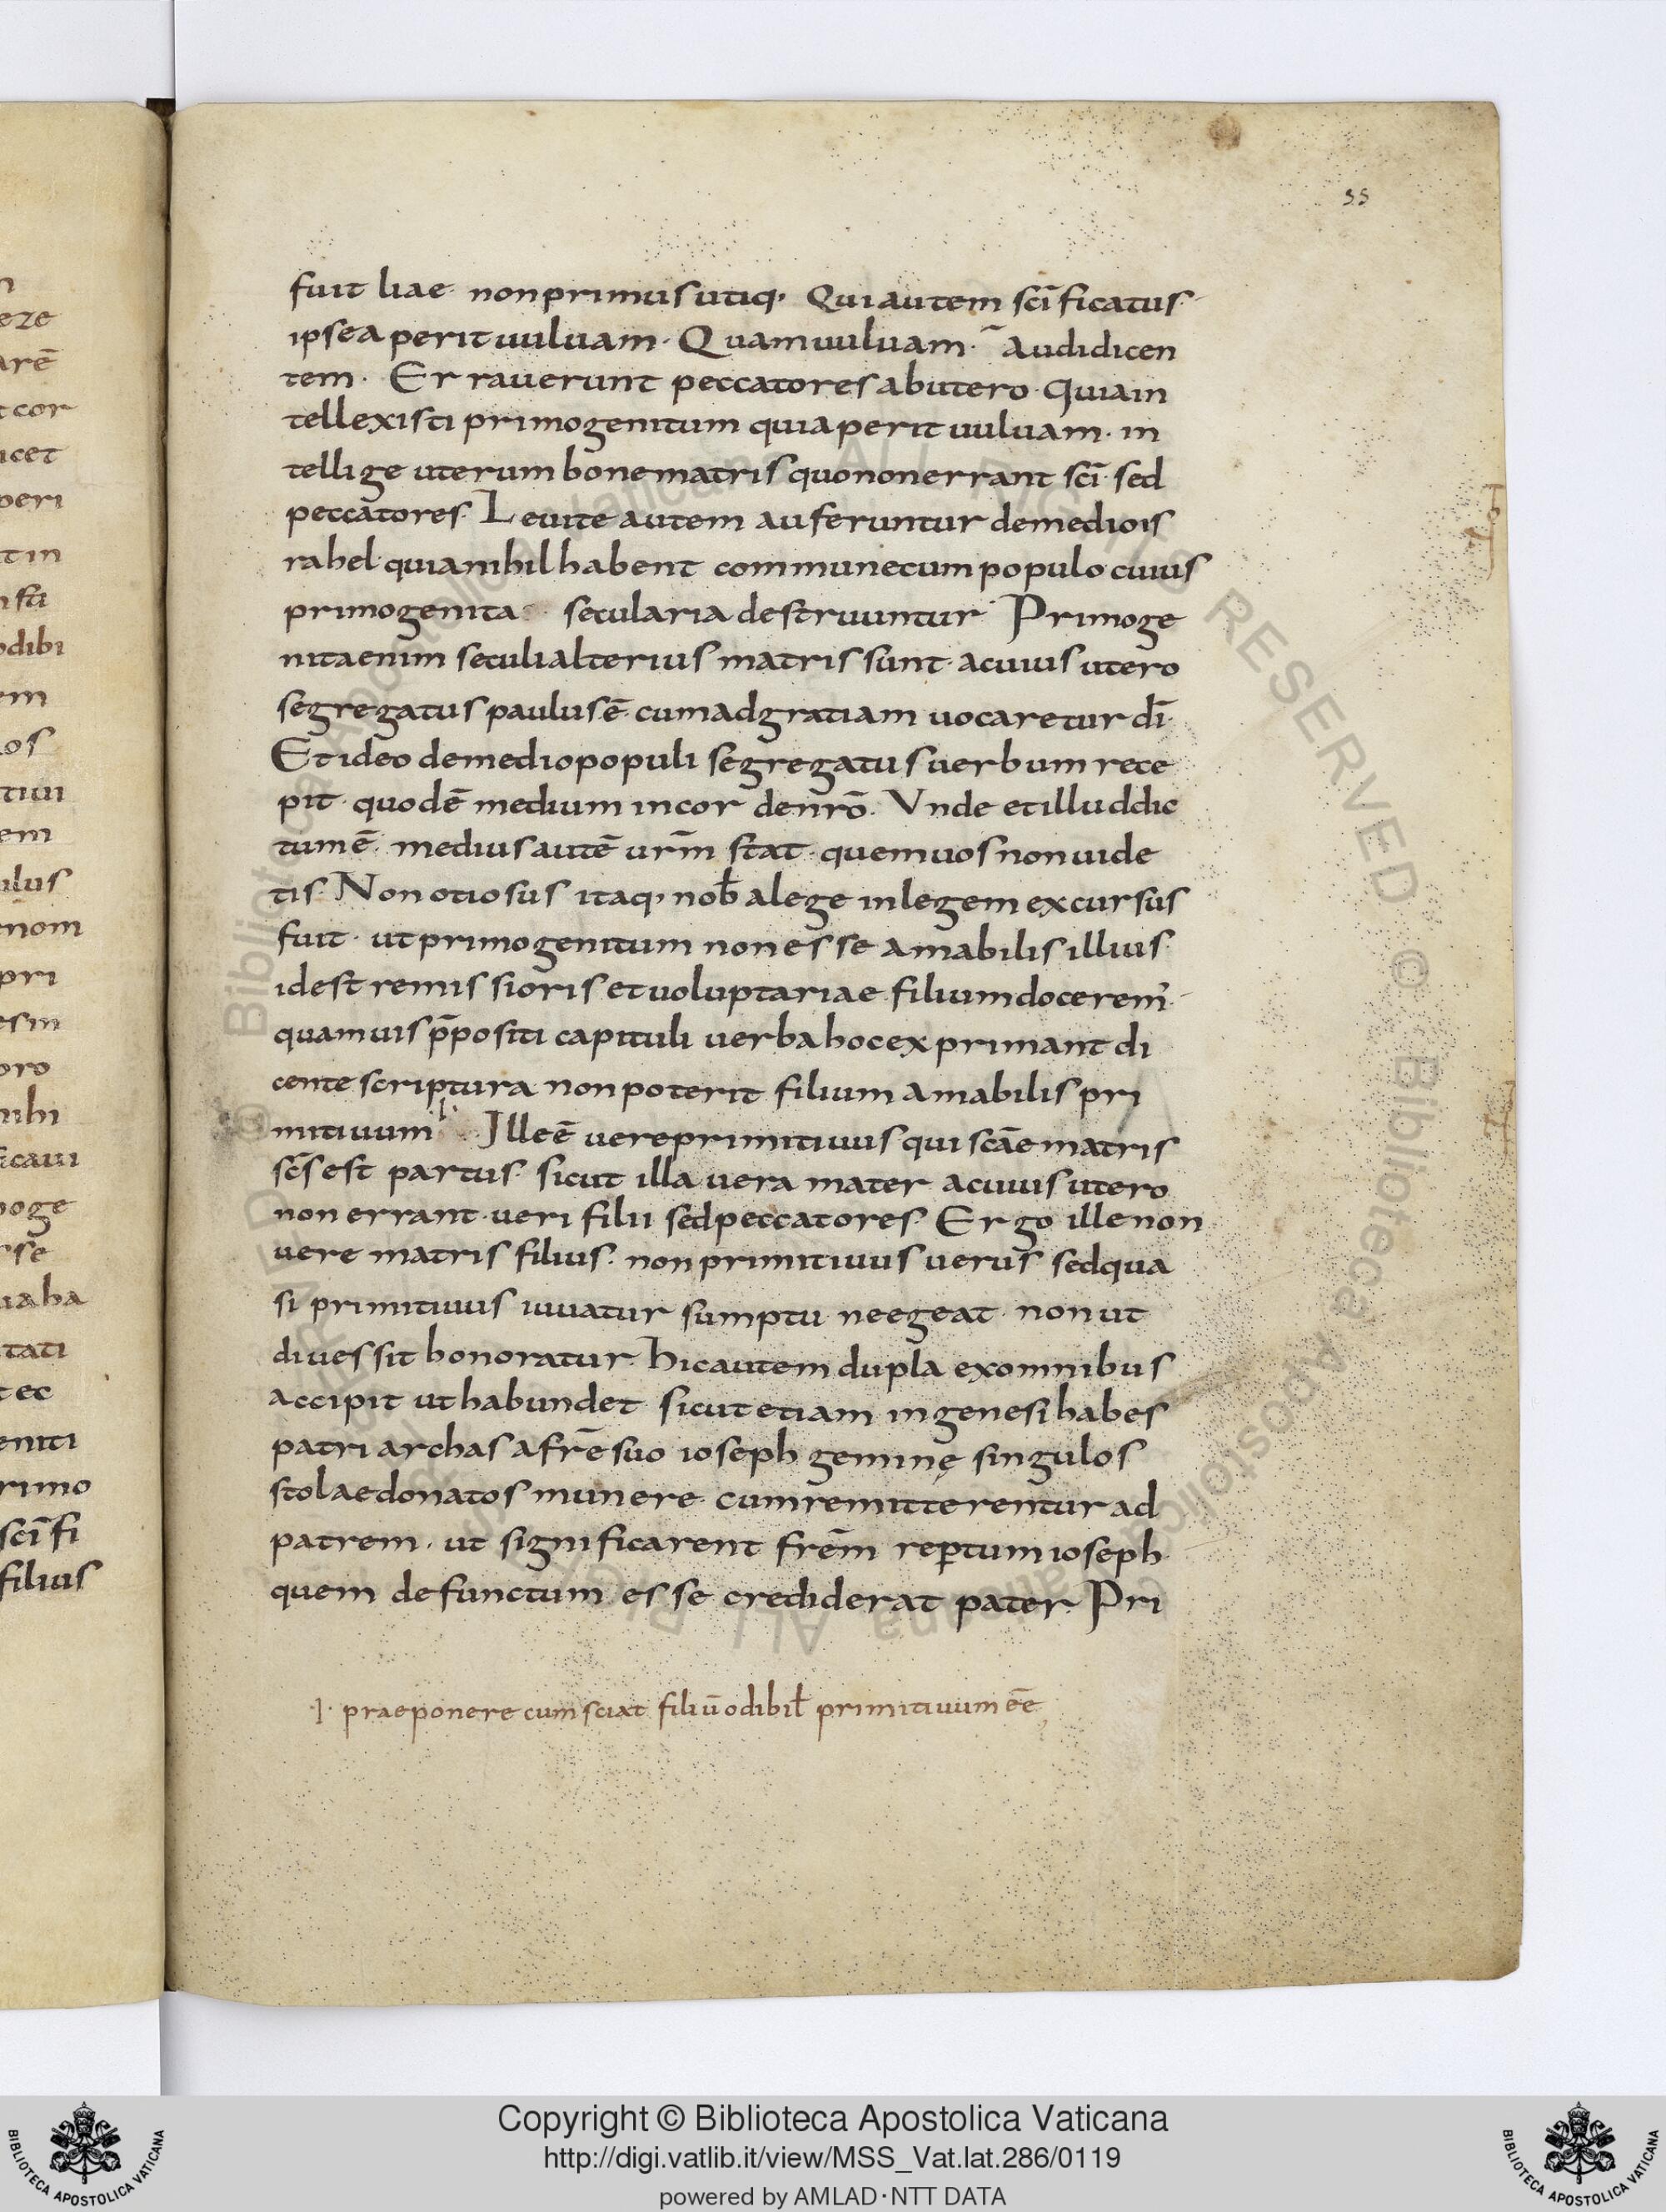 55
fuit liae· non primus utiq· Qui autem scīficatus·
ipse aperit uuluam· Quam uuluam·̄ Audi dicen
tem· Erraverunt peccatores ab utero· Quia in
tellexisti primogenitum qui aperit uuluam· in
tellige uterum bone matris quo non errant scī· sed
peccatores· Levite autem auferuntur de medio is
rahel· quia nihil habent commune cum populo· cuius
primogenita · secularia destruuntur· Primoge
nita enim seculi alterius matris sunt· a cuius utero
segregatus paulus ē· cum ad gratiam uocaretur dī·
Et ideo de medio populi segregatus verbum rece
pit· quod ē medium in corde nrō· Vnde et illud dic
tum ē· medius autē urm̄ stat· quem uos non uide
tis· Non otiosus itaq· nob̄ a lege in legem excursus
fuit· ut primogenitum non esse amabilis illius·
id est remissioris et uoluptariae filium docerem̄·
quamuis p̄positi capituli verba hoc expriment di
cente scriptura non poterit filium amabilis pri
mitiuum·ɫ· Ille ē vere primitiuus qui scāe matris
scs̄ est partus· sicut illa vera mater a cuius utero
non errant· veri filii sed peccatores· Ergo ille non
vere matris filius· non primitiuus verus sed qua
si primitiuus iuuatur sumptu ne egeat· non ut
diues sit honoratur· hic autem dupla ex omnibus
accipit ut habundet· sicut etiam in genesi habes
patriarchas a frē suo ioseph geminę singulos
stolae donatos munere· cum remitterentur ad
patrem· ut significarent frēm rep̄tum ioseph·
quem defunctum esse crediderat pater· Pri
·ɫ· praeponere cum sciat filiū odibil̄ primitiuum eē
n
eze
arē
t cor
icet
peri
t in
odibi
em
los
tiui
em
ulus
enom
pri
es in
pro
nihi
ficaui
moge
r se
ua ha
tati
t ec
eniti
rimo
scīfi
filius
© Biblioteca Apostolica Vaticana ALL RIGHTS RESERVED © Biblioteca Apostolica Vaticana ALL RIGHTS RESERVED
Copyright © Biblioteca Apostolica Vaticana
http://digi.vatlib.it/view/MSS_Vat.lat.286/0119
powered by AMLAD·NTT DATA
BIBLIOTECA APOSTOLICA VATICANA
BIBLIOTECA APOSTOLICA VATICANA